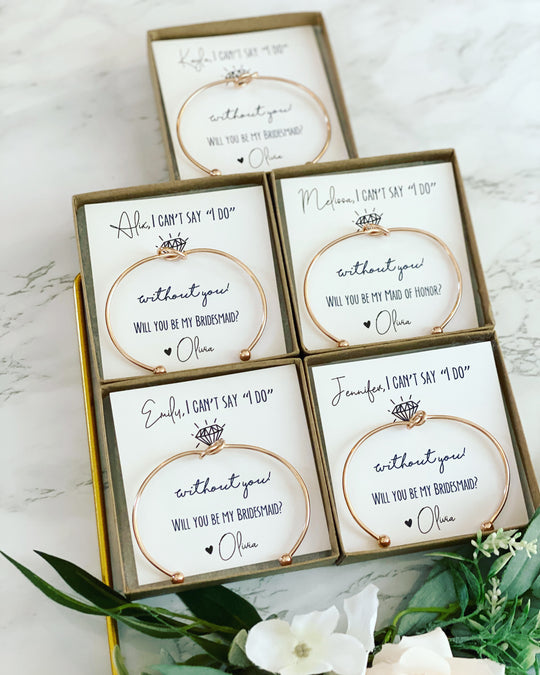 Kayla, I CAN'T SAY "I DO"
without you!
WILL YOU BE MY BRIDESMAID?
♥ Olivia
Alix, I CAN'T SAY "I DO"
without you!
WILL YOU BE MY BRIDESMAID?
♥ Olivia
Melissa, I CAN'T SAY "I DO"
without you!
WILL YOU BE MY MAID OF HONOR?
♥ Olivia
Emily, I CAN'T SAY "I DO"
without you!
WILL YOU BE MY BRIDESMAID?
♥ Olivia
Jennifer, I CAN'T SAY "I DO"
without you!
WILL YOU BE MY BRIDESMAID?
♥ Olivia